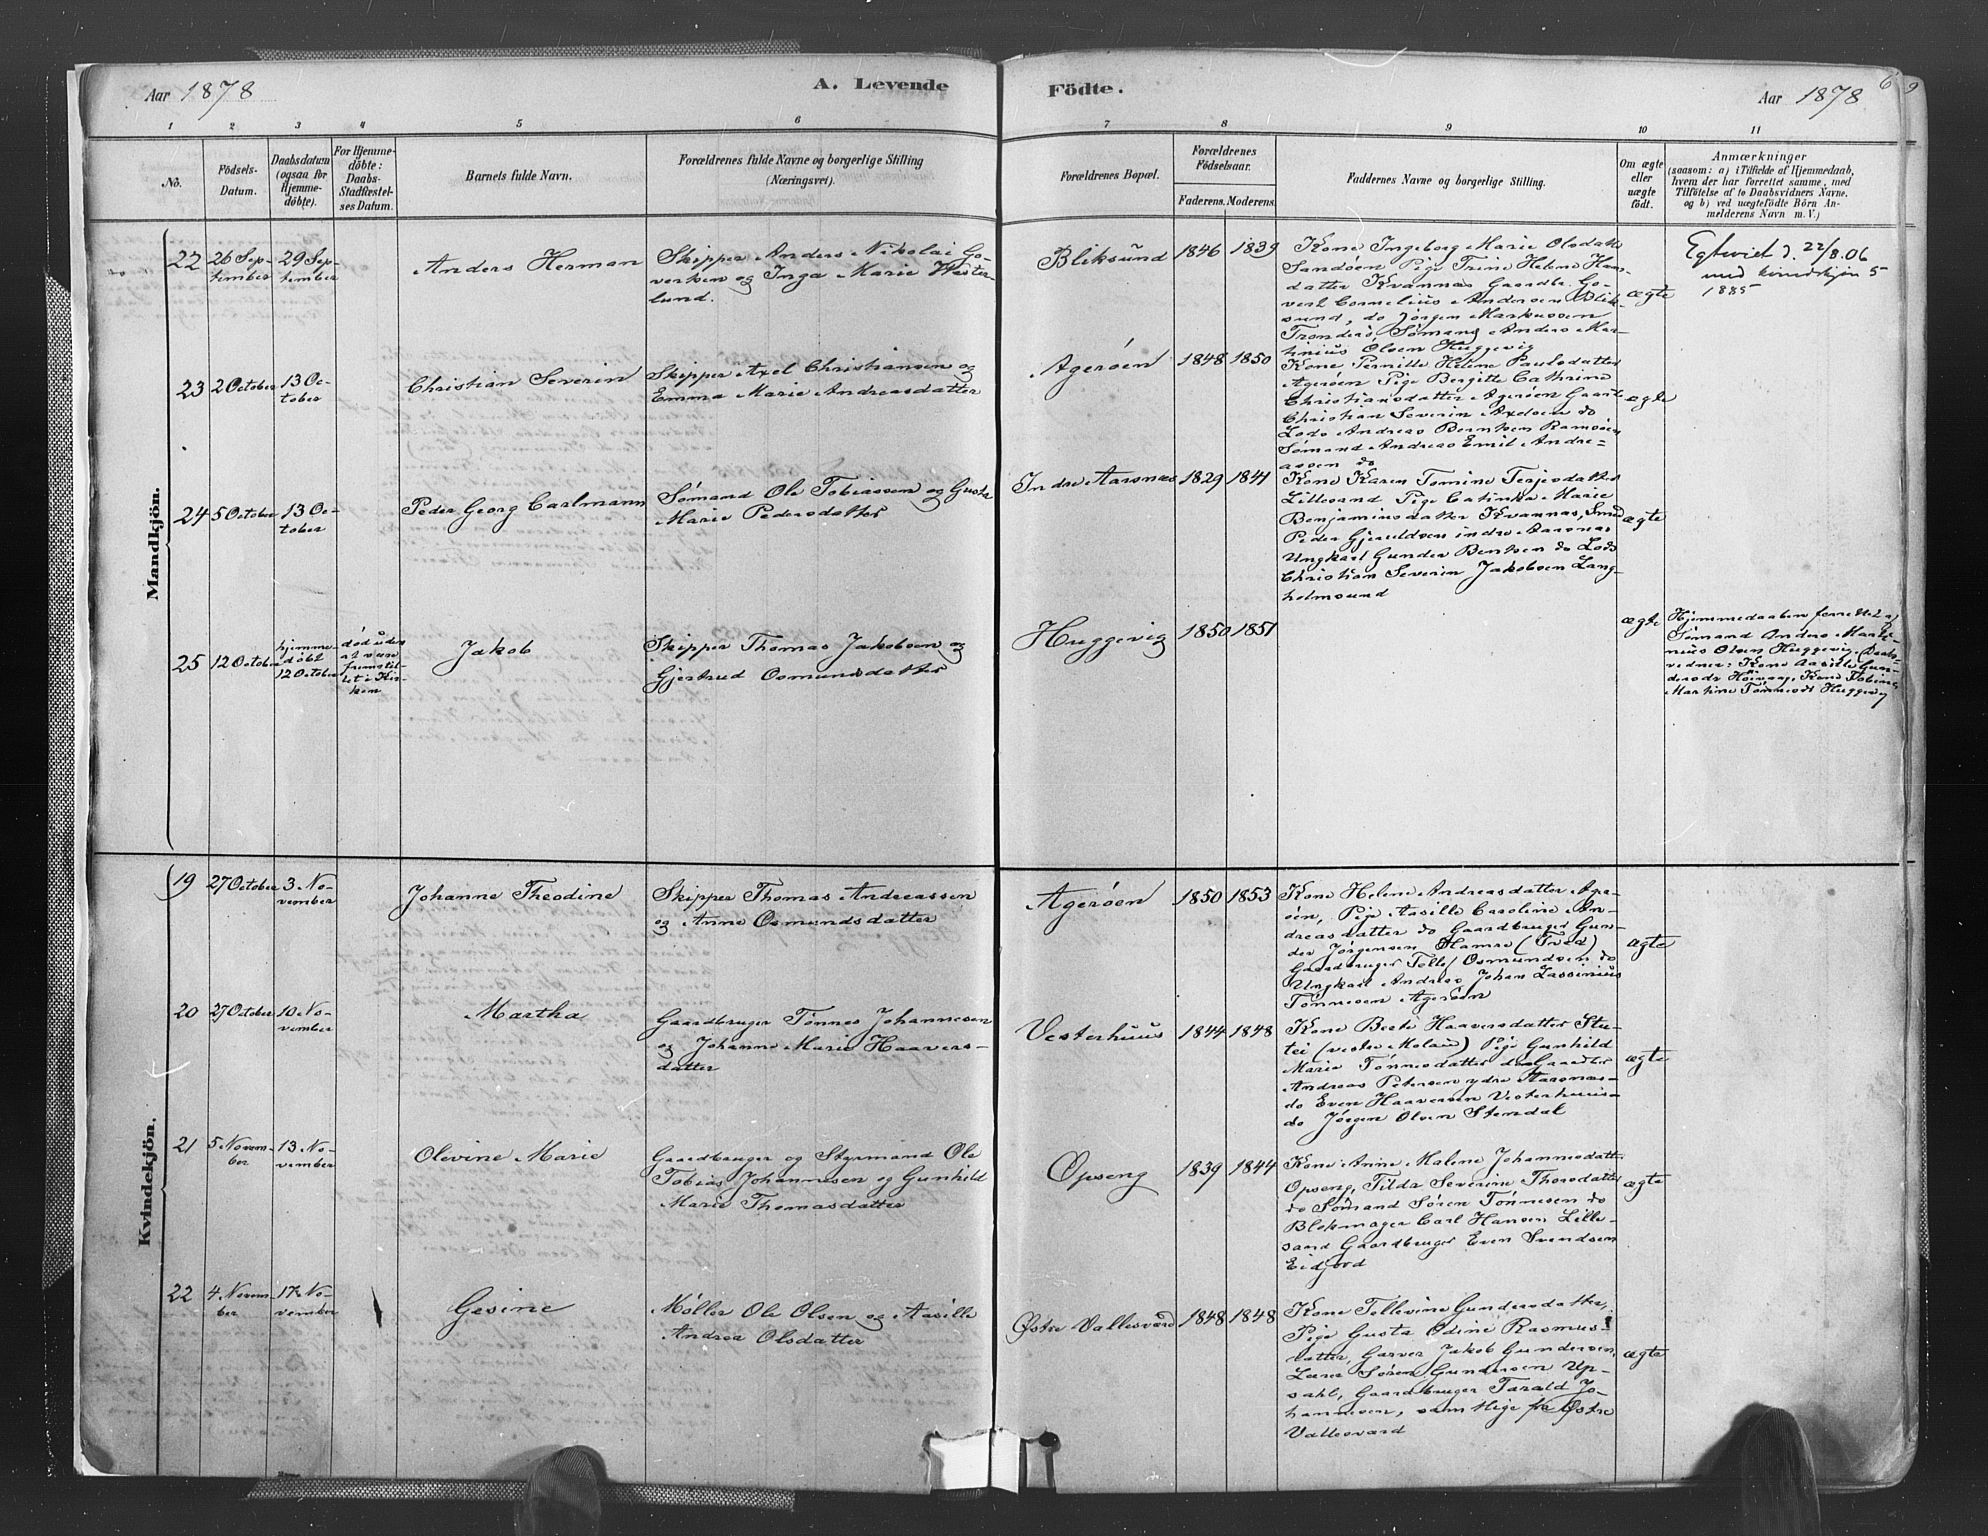 Aar 1878
A. Levende
Födte.
Aar 1878
6
1 2 3 4 5 6 7 8 9 10 11
No.
Födsels-
Datum.
Daabsdatum
(ogsaa for
Hjemme-
döbte).
For Hjemme-
döbte:
Daabs-
Stadfæstel-
ses Datum.
Barnets fulde Navn.
Forældrenes fulde Navne og borgerlige Stilling
(Næringsvei).
Forældrenes Bopæl.
Forældrenes
Födselsaar.
Faderens. Moderens.
Faddernes Navne og borgerlige Stilling.
Om ægte
eller
uægte
födt.
Anmærkninger
(saasom: a) i Tilfælde af Hjemmedaab,
hvem der har forrettet samme, med
Tilföielse af to Daabsvidners Navne.
og b) ved uægtefödte Börn An-
melderens Navn m. V.)
Mandkjön.
22
26 Sep-
tember
29 Sep-
tember
Anders Herman
Skipper Anders Nikolai Go-
verksen og Inga Marie Wester-
lund.
Bliksund
1846
1839
Kone Ingeborg Marie Olsdatter
Sandöen Pige Trine Helene Han-
datter Kvannas Gaardbr. Go-
vert Cornelius Andersen Blik-
sund, do Jørgen Markussen
Tronderö, Sømand Anders Mar-
tinius Olsen Huggevig
ægte
Egteviet d. 22/8.06
med kvindekjøn 5
1885
23
2 October
13 Oc-
tober
Christian Severin
Skipper Axel Christiansen og
Emma Marie Andreasdatter
Agerøen
1848
1850
Kone Pernille Helene Paulsdatter
Agerøen Pige Bergitte Cathrine
Christiansdatter Agerøen Gaardb
Christian Severin Axelsen do
Lods Andreas Berntsen Ramsøen
Sømand Andreas Emil Andre-
assen do
ægte
24
5 October
13 Oc-
tober
Peder Georg Carlmann
Sømand Ole Tobiassen og Gusta
Marie Pedersdatter
Indre Aarsnas
1829
1841
Kone Karen Tomine Terjesdatter
Lillesand Pige Catinka Marie
Benjaminsdatter Kvannas, Smed
Peder Gjeruldsen indre Aarsnas
Ungkarl Gunder Bentsen do Lods
Christian Severin Jakobsen Lang-
holmsund
ægte
25
12 October
hjemme
døbt
12 October
død uden
at være
fremstil-
let i Kir-
ken
Jakob
Skipper Thomas Jakobsen og
Gjertrud Osmundsdatter
Huggevig
1850
1851
ægte
Hjemmedaaben forrettet af
Sømand Anders Marti-
nius Olsen Huggevig. Daabs-
vidner: Kone Aasille Gun-
dersdr Høivaag, Kone Tobine
Martine Tønnesdr Huggevig
Kvindekjön.
19
27 October
3 No-
vember
Johanne Theodine
Skipper Thomas Andreassen
og Anne Osmundsdatter
Agerøen
1850
1853
Kone Helene Andreasdatter Age-
røen, Pige Aasille Caroline An-
dreasdatter do Gaardbruger Gun-
der Jørgensen Hamre (Tved)
Gaardbruger Tellef Osmundsen do
Ungkarl Andreas Johan Lassinius
Tønnesen Agerøen
ægte
20
27 October
10 No-
vember
Martha
Gaardbruger Tønnes Johannesen
og Johanne Marie Haavers-
datter
Vesterhuus
1844
1848
Kone Berte Haaversdatter Stu-
tei (vestre Molan) Pige Gunhild
Marie Tønnesdatter do Gaardbr
Andreas Petersen ydre Aarsnas-
do Even Haaversen Vesterhuus-
do Jørgen Olsen Stendal
ægte
21
5 Novem-
ber
13 No-
vember
Olevine Marie
Gaardbruger og Styrmand Ole
Tobias Johannesen og Gunhild
Marie Thomasdatter
Opseng
1839
1844
Kone Anne Malene Johannesdatter
Opseng, Tilda Severine Thorsdatter
do Sømand Søren Tønnesen do
Blokmager Carl Hansen Lille-
sand Gaardbruger Even Svendsen
Eidjord
ægte
22
4 Novem-
ber
17 No-
vember
Gesine
Møller Ole Olsen og Aasille
Andrea Olsdatter
Østre Vallesværd
1848
1848
Kone Tellevine Gundersdatter,
Pige Gusta Odine Rasmus-
datter, Garver Jakob Gundersen,
Lærer Søren Gundersen Up-
sahl, Gaardbruger Tarald Jo-
hannesen, samtlige fra Østre
Vallesværd
ægte